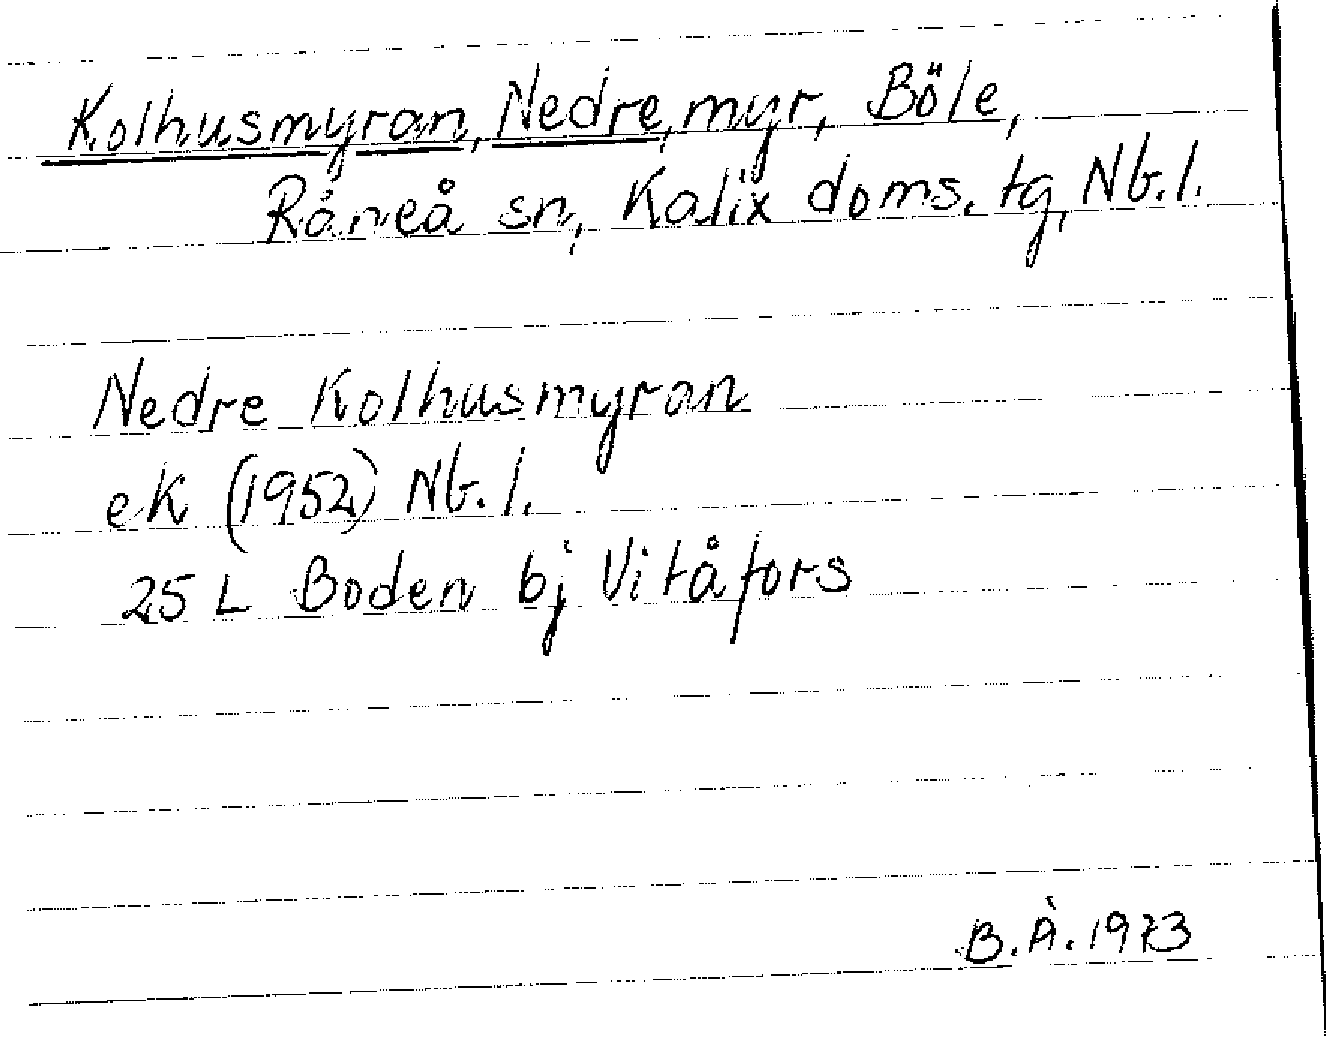 Kolhusmyran, Nedre, myr, Böle,
Råneå sn, Kalix doms. tg, Nb. l.
Nedre Kolhusmyran
ek (1952) Nb. l.
25 L Boden bj Vitåfors
B.Å. 1973